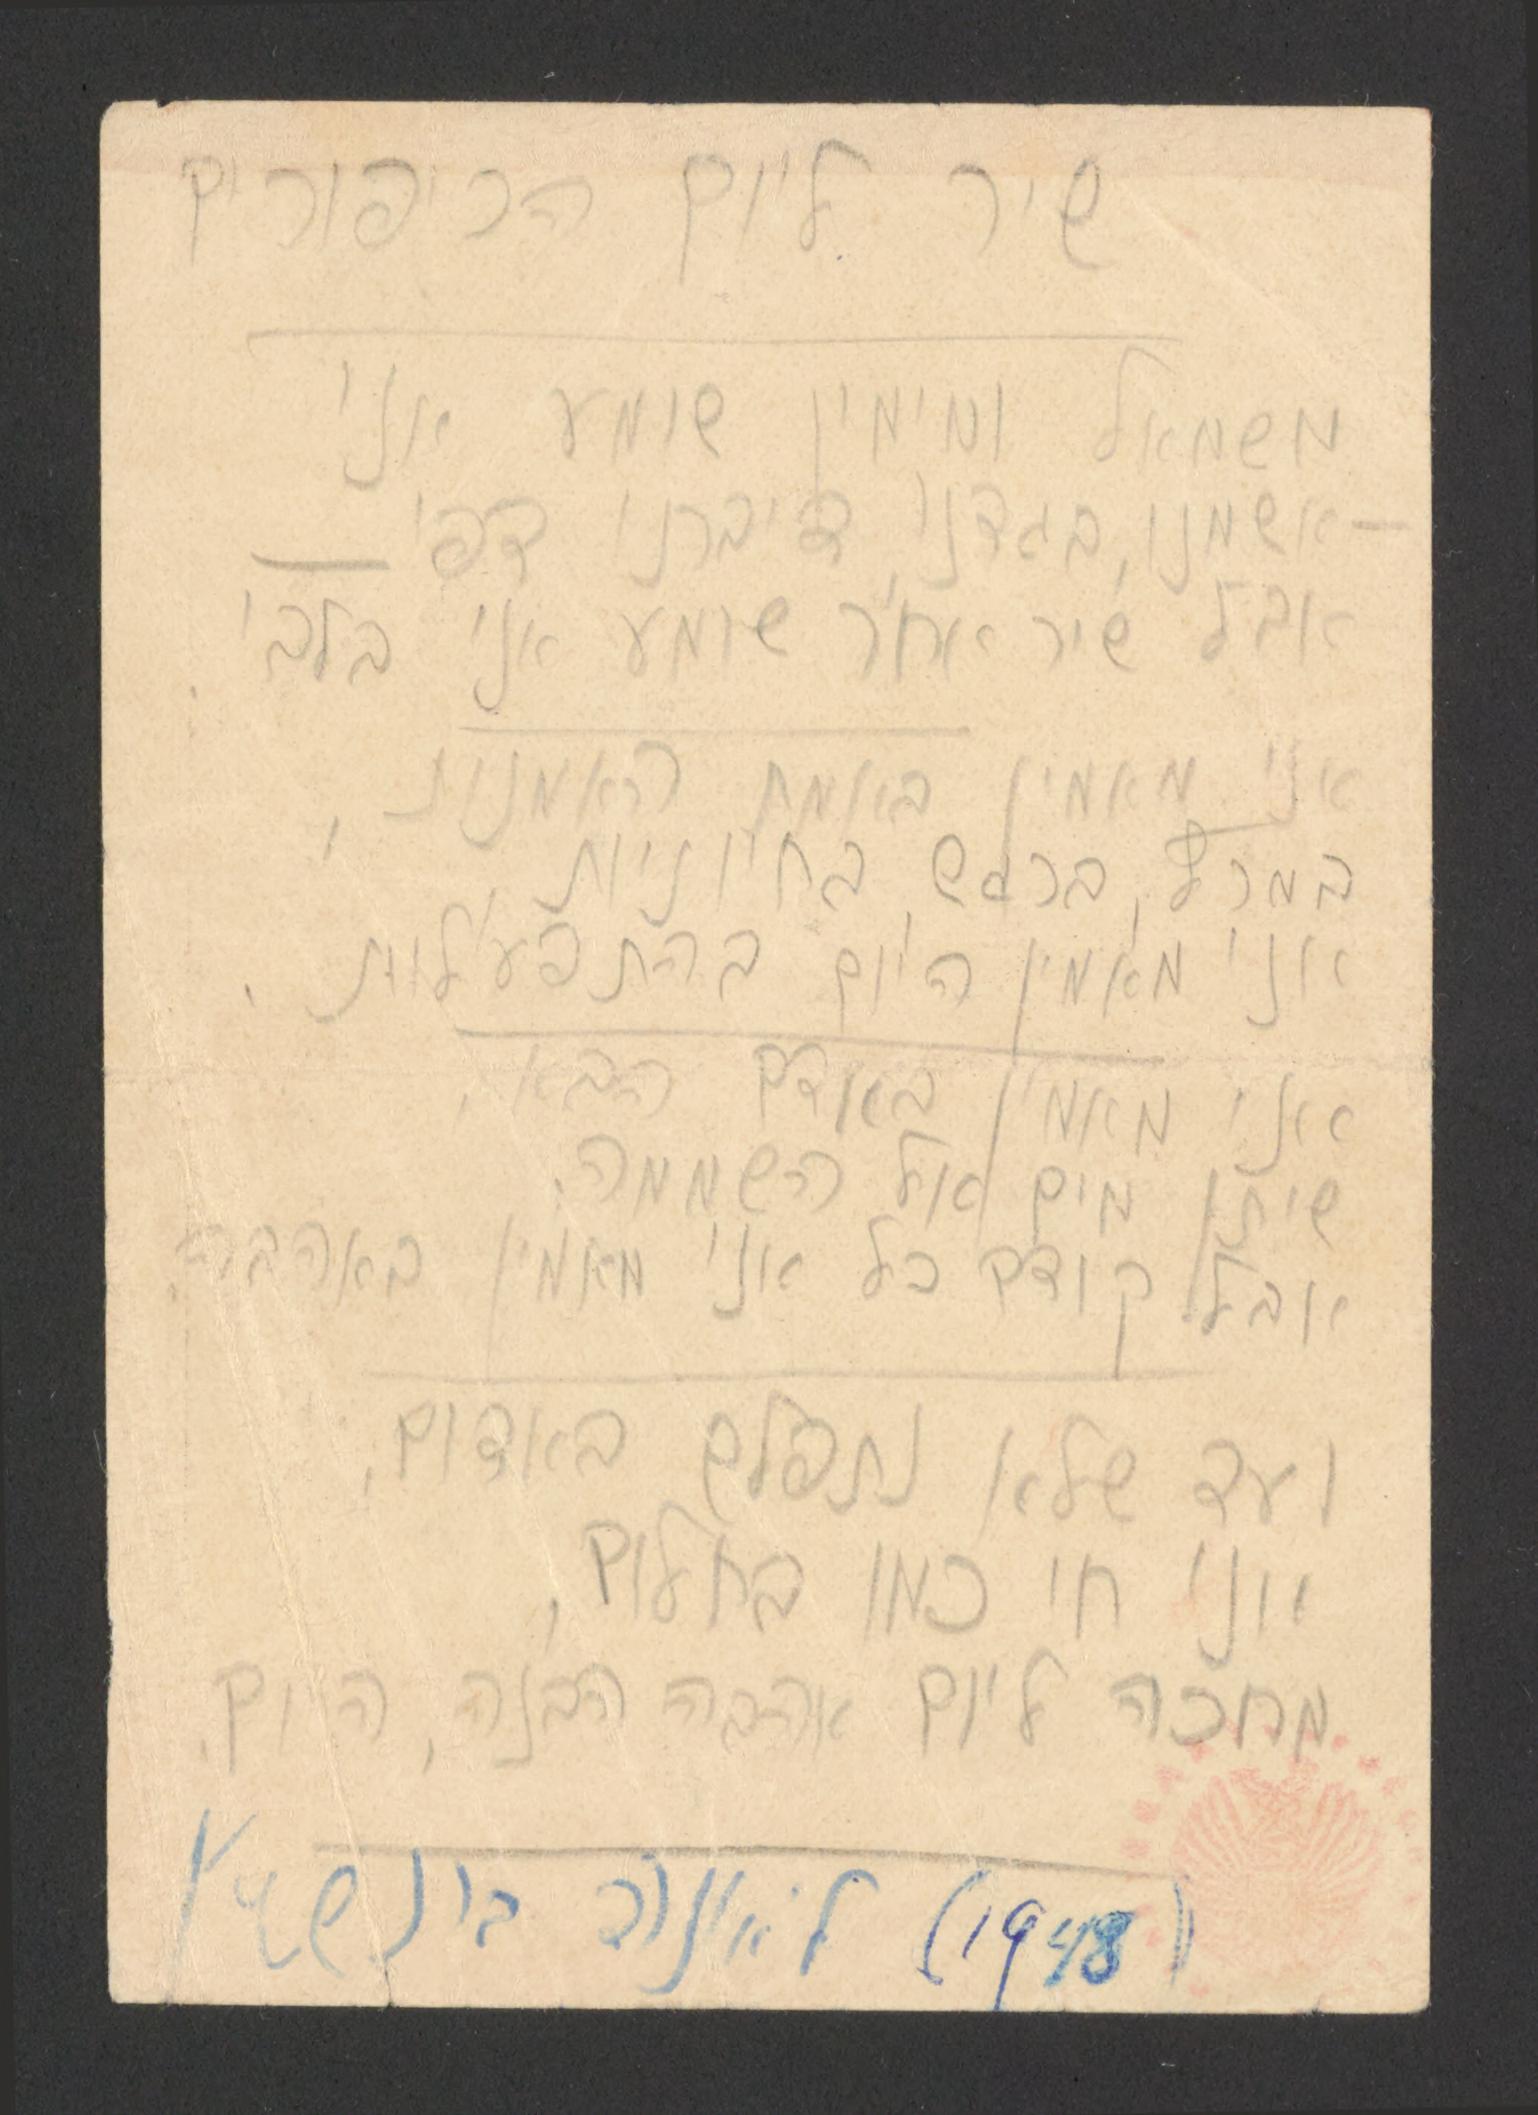 שיר ליום הכיפורים
משמאל ומימין שומע אני
— אשמנו, בגדנו, דיברנו דפי —
אבל שיר אחר שומע אני בלבי
אני מאמין באמת האמנות,
במרץ, ברגש, בחיוניות,
אני מאמין היום בהתפעלות.
אני מאמין באדם הבא,
שיתן מים אל השממה.
אבל קודם כל אני מאמין באהבה.
ועד שלא נתפלם באדום,
אני חי כמו בחלום,
מחכה ליום אהבה הבנה, היום.
(1948) ליאונרד ברנשטיין